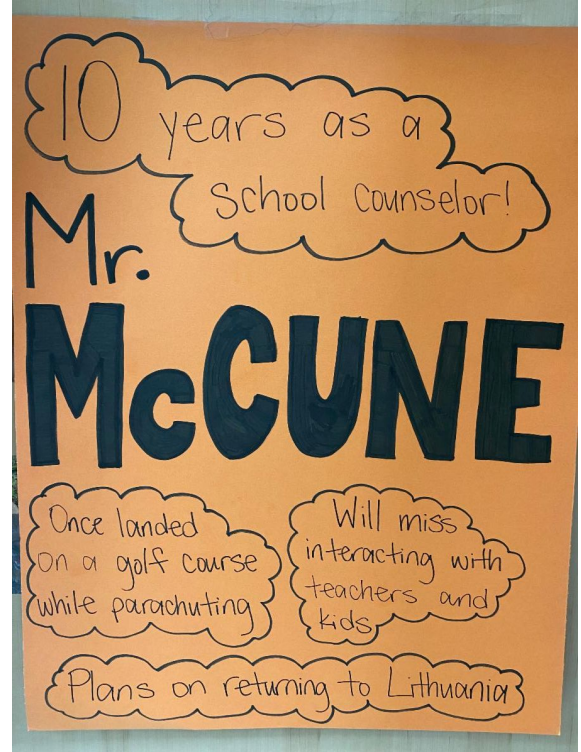 10 years as a
school counselor!
Mr.
McCUNE
Once landed
on a golf course
while parachuting
Will miss
interacting with
teachers and
kids
Plans on returning to Lithuania